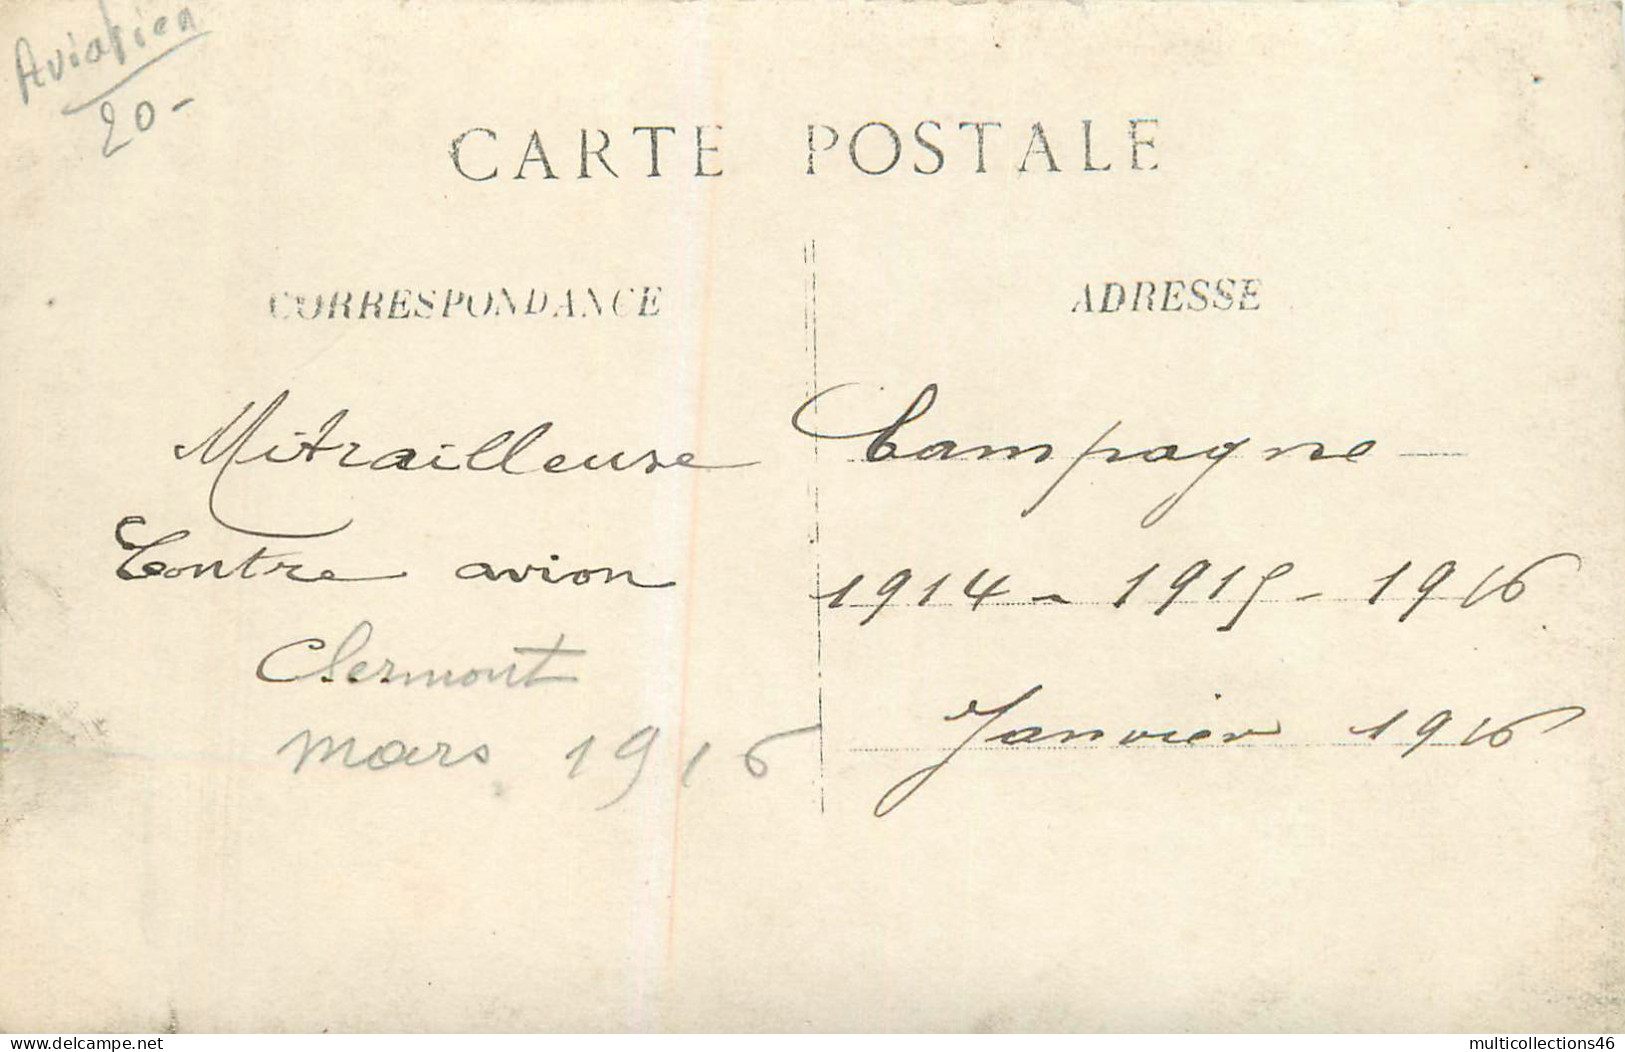 Aviation
20-
CARTE POSTALE
CORRESPONDANCE
ADRESSE
Mitrailleuse
Contre avion
Clermont
mars 1916
Campagne
1914 - 1915 - 1916
Janvier 1916
delcampe.net
multicollections46